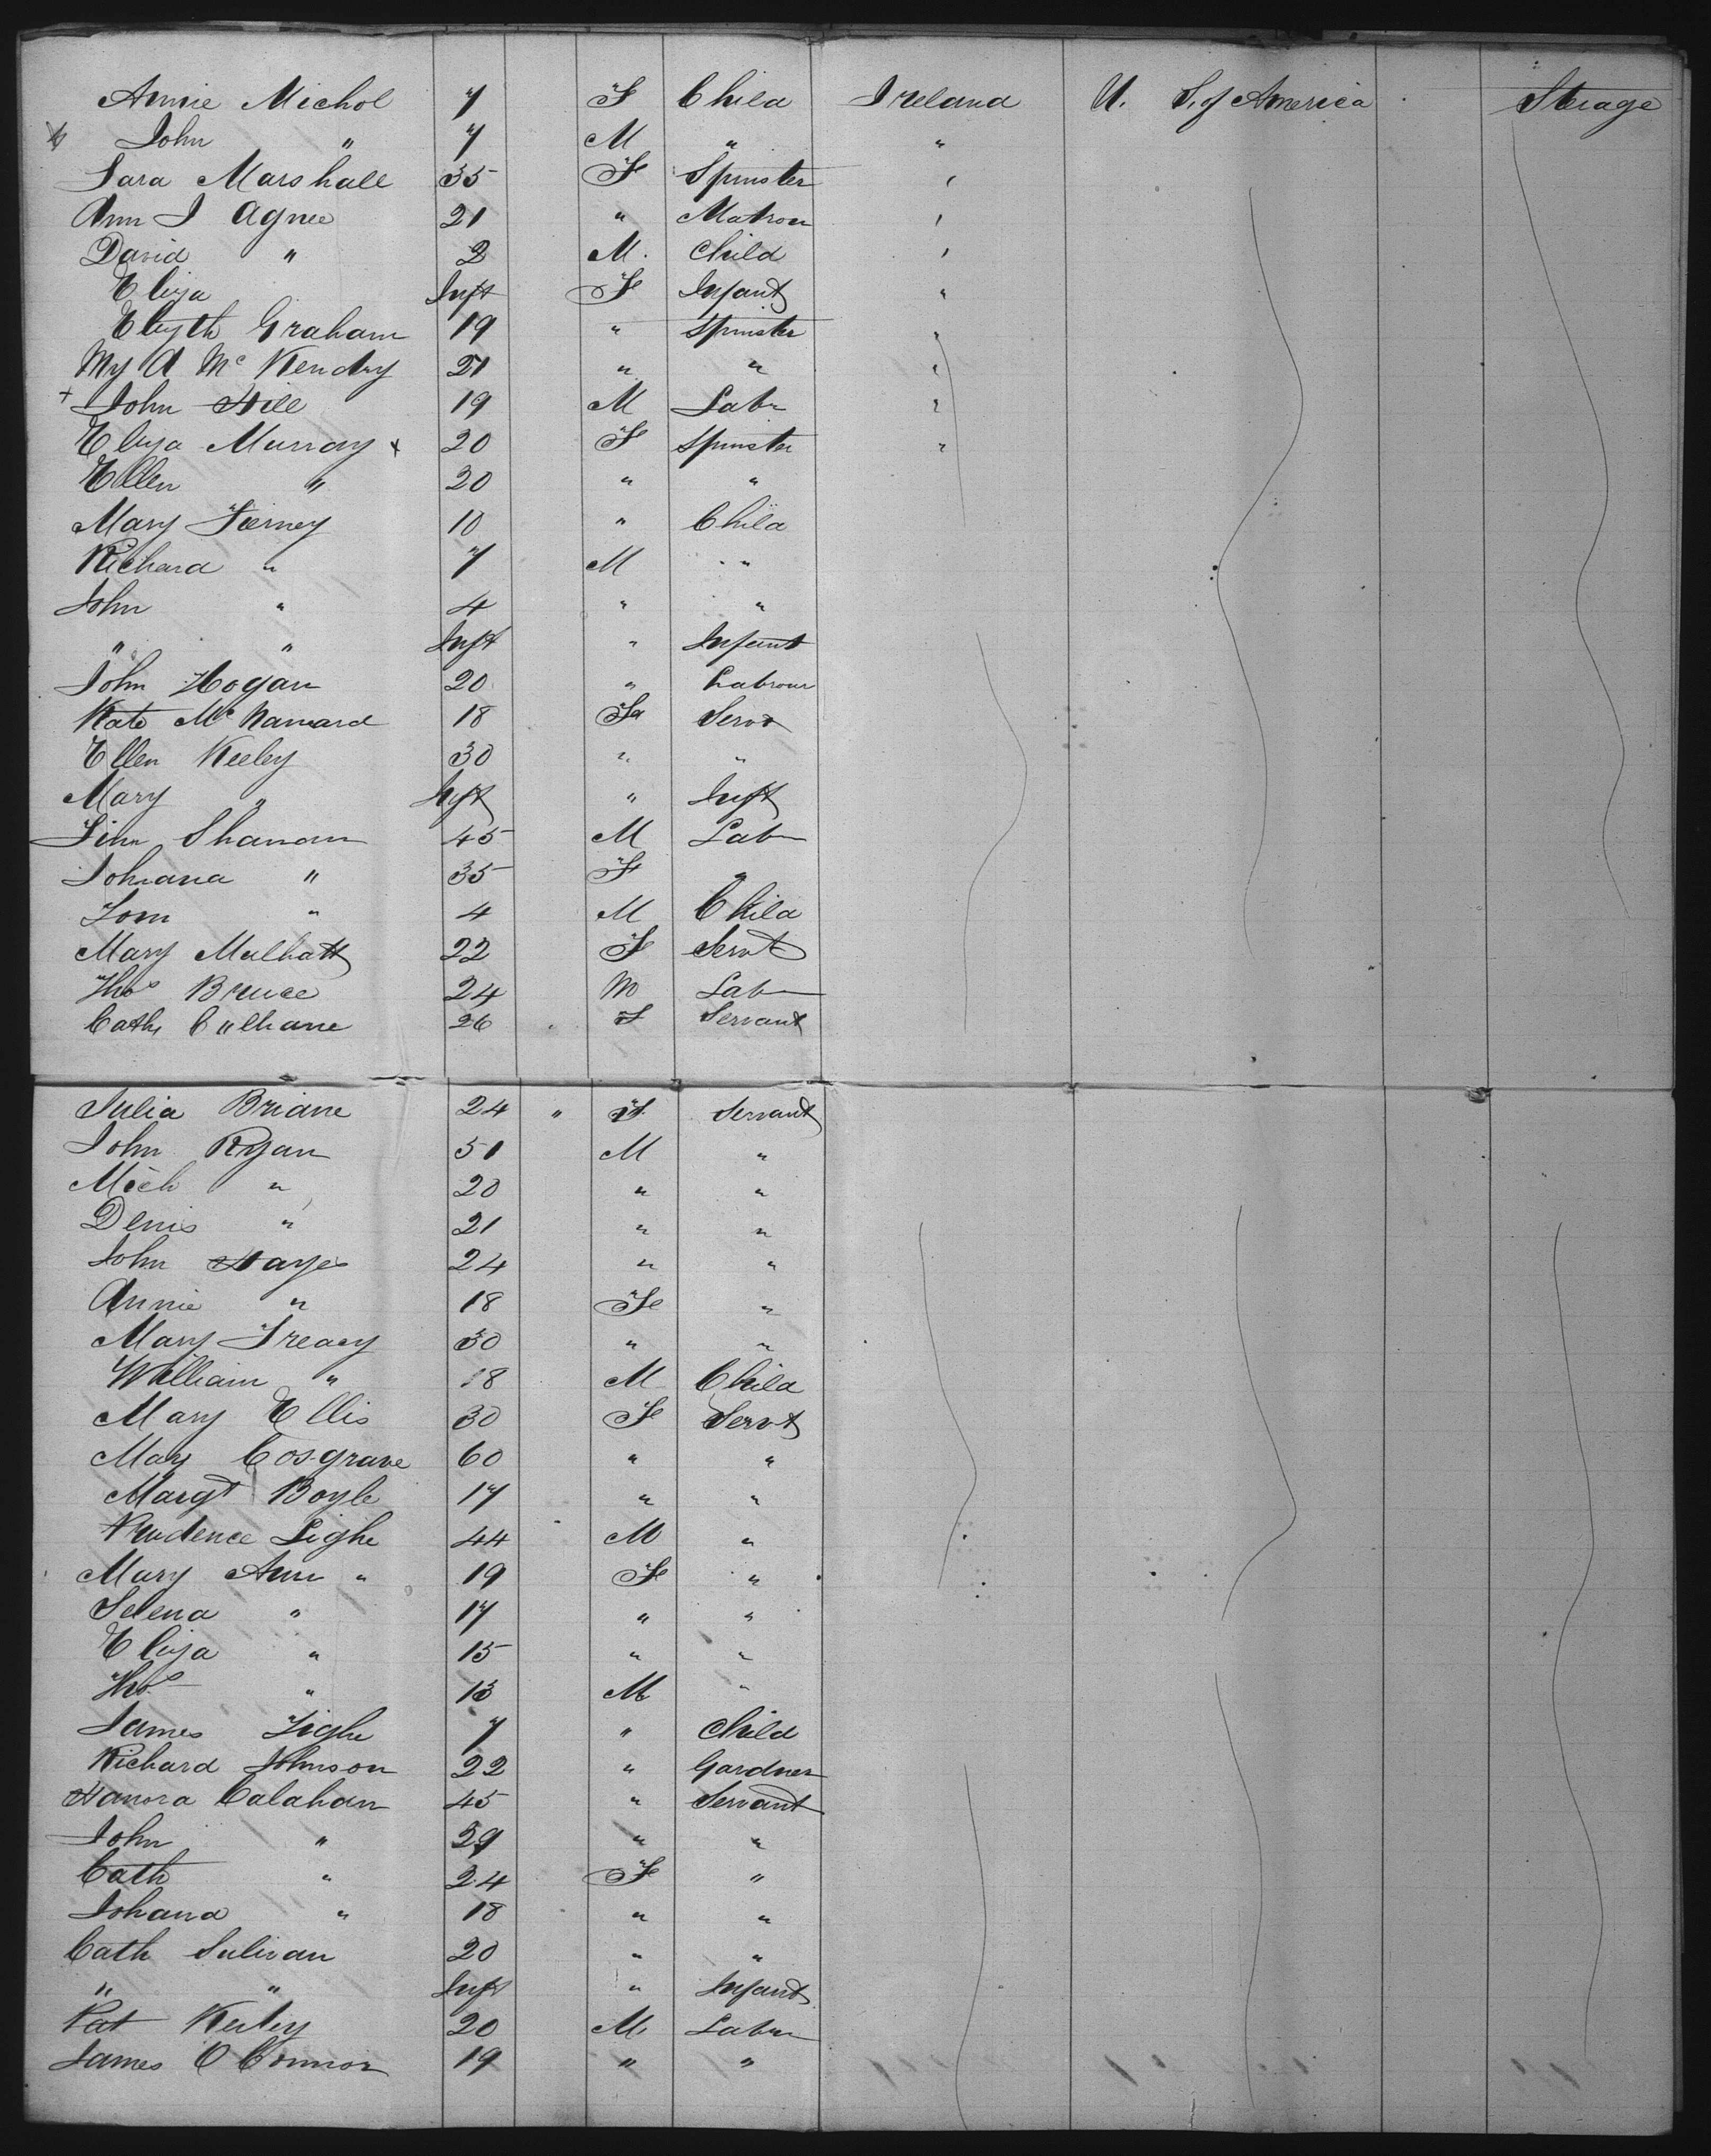 Annie Michol 7 F Child Ireland U. S. of America Sterage
John " 7 M " "
Sara Marshall 35 F Spinster "
Ann J Agnee 21 " Matron "
David " 2 M. Child "
Eliza Inft F Infant "
Elizth Graham 19 " Spinster "
My A McKendry 21 " " "
+ John Hill 19 M Labr "
Eliza Murray x 20 F Spinster "
Ellen " 20 " "
Mary Tierney 10 " Child
Richard " 7 M "
John " 4 " "
" " Inft " Infant
John Hogan 20 " Labrour
Kate McNamard 18 Fa Servt
Ellen Keeley 30 " "
Mary " Inft " Inft
Jim Shanan 45 M Labr
Johana " 35 F "
Tom " 4 M Child
Mary Mulhatt 22 F Servt
Thos Bruce 24 M Labr
Cath Culhane 26 F Servant
Julia Briane 24 " F. Servant
John Ryan 51 M "
Mich " 20 " "
Denis " 21 " "
John Hayes 24 " "
Annie " 18 Fe "
Mary Treacy 30 " "
William " 18 M Child
Mary Ellis 30 F Servt
Mary Cosgrave 60 " "
Margt Boyle 17 " "
Prudence Lighe 44 M "
Mary Ann " 19 Fe "
Selena " 17 " "
Eliza " 15 " "
Thos " 13 M "
James Tighe 7 " Child
Richard Johnson 22 " Gardner
Hanora Calahan 45 " Servant
John " 29 " "
Cath " 24 Fe "
Johana " 18 " "
Cath Sulivan 20 " "
" " Inft " Infant
Pat Keiley 20 M Labr
James O Connor 19 " "